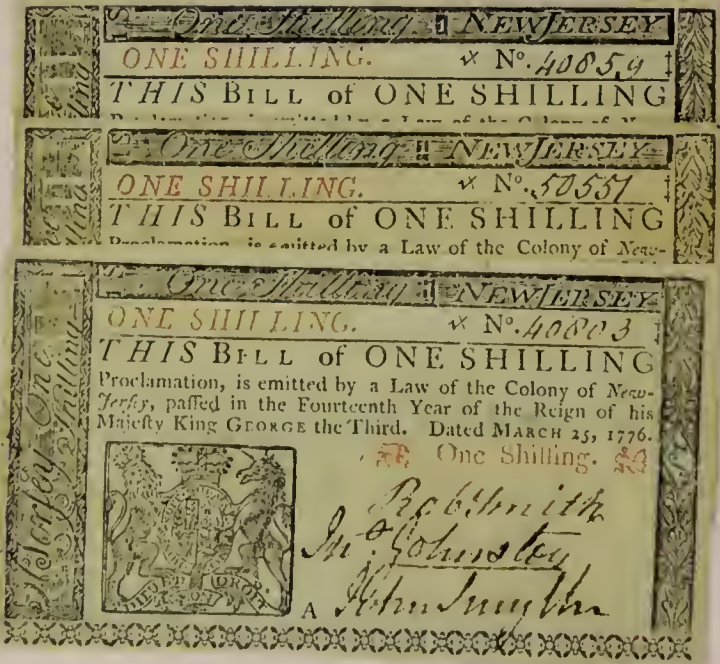 One Shilling. NEW JERSEY
ONE SHILLING. No. 40859
THIS BILL of ONE SHILLING
One Shilling NEW JERSEY
ONE SHILLING. No. 50551
THIS BILL of ONE SHILLING
Proclamation, is emitted by a Law of the Colony of New-
One Shilling NEW JERSEY
ONE SHILLING. No. 40803
THIS BILL of ONE SHILLING
Proclamation, is emitted by a Law of the Colony of New-
Jerſey, paſſed in the Fourteenth Year of the Reign of his
Majeſty King GEORGE the Third. Dated MARCH 25, 1776.
One Shilling.
Rob Smith
Jno. Johnston
John Smyth
A
DIEU ET DROIT
Jerſey One
Shilling